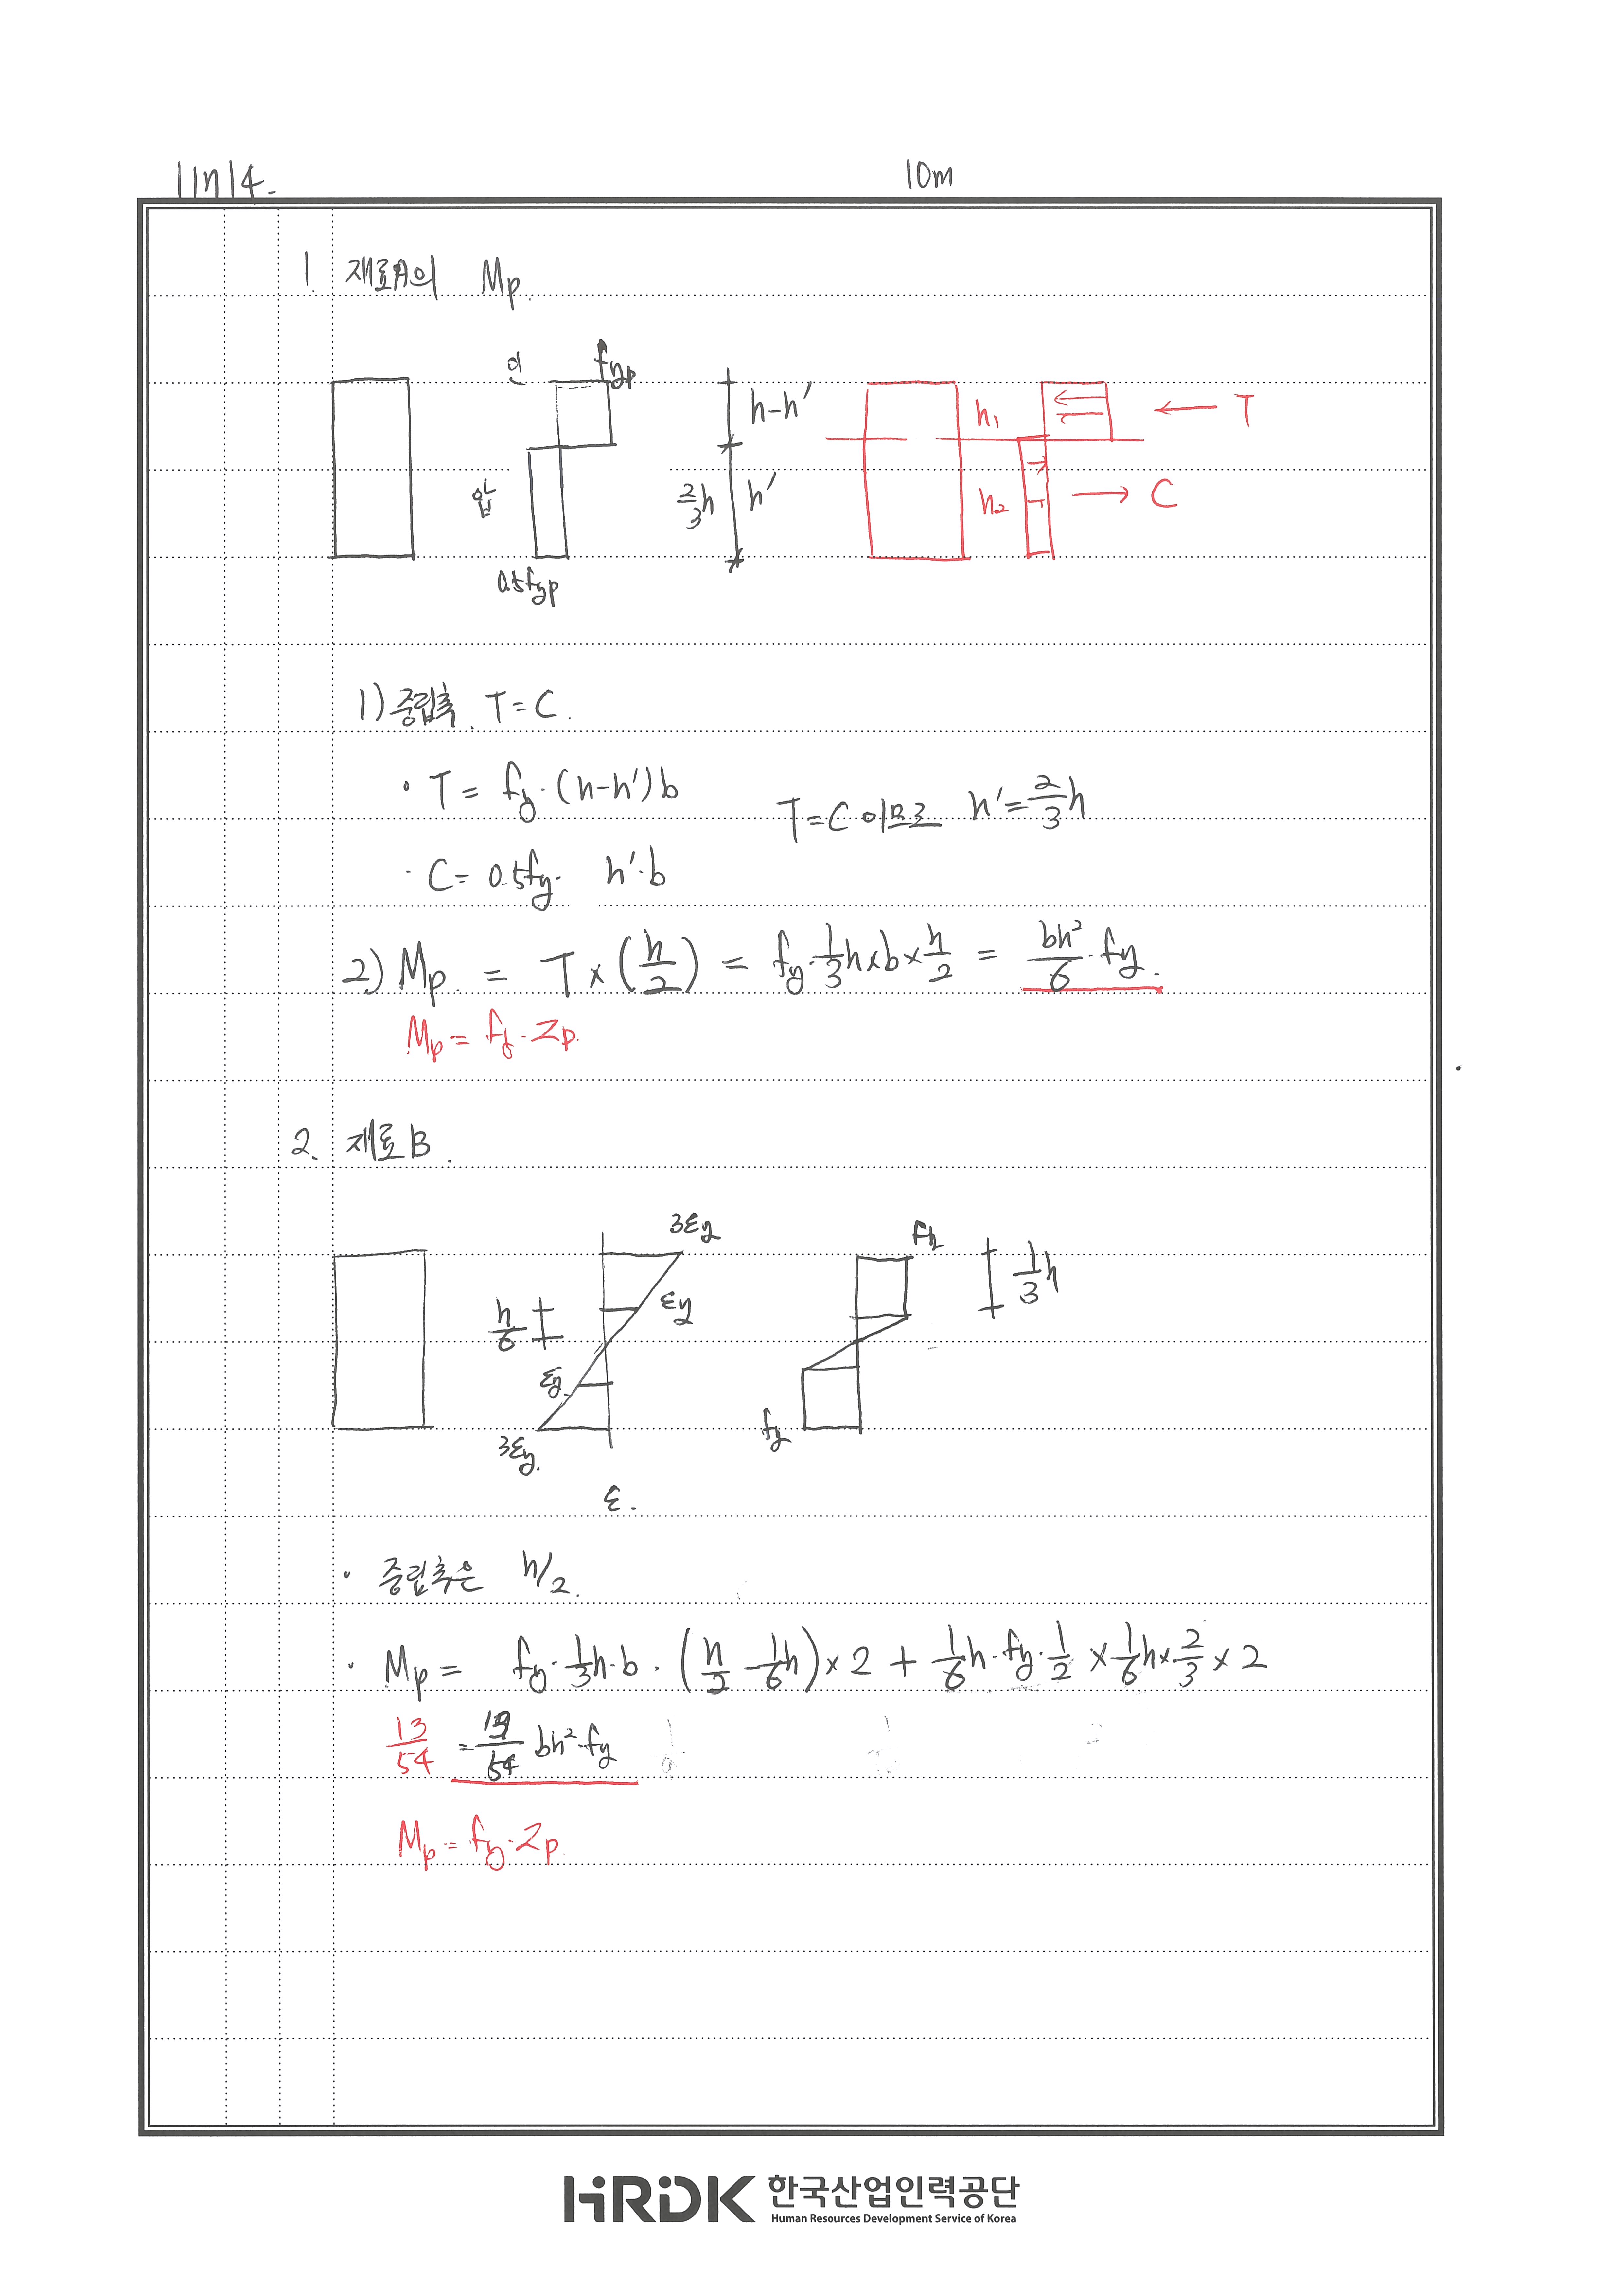 117114.
10m
1. 재료A의 Mp.
인 fyp
압
0.5fyp
h-h'
2/3h h'
h1 T
h2 C
1) 중립축. T=C.
· T = fy·(h-h')b
T=C 이므로 h'=2/3h
· C = 0.5fy· h'·b
2) Mp. = T×(h/2) = fy·1/3h×b×h/2 = bh²/6·fy.
Mp = fy·Zp.
2. 재료B.
3εy fy 1/3h
h/6 εy
εy.
3εy. fy
ε.
· 중립축은 h/2.
· Mp = fy·1/3h·b·(h/2-1/6h)×2 + 1/6h·fy·1/2×1/6h×2/3×2
13/54 = 13/54 bh²·fy
Mp = fy·Zp.
HRDK 한국산업인력공단
Human Resources Development Service of Korea